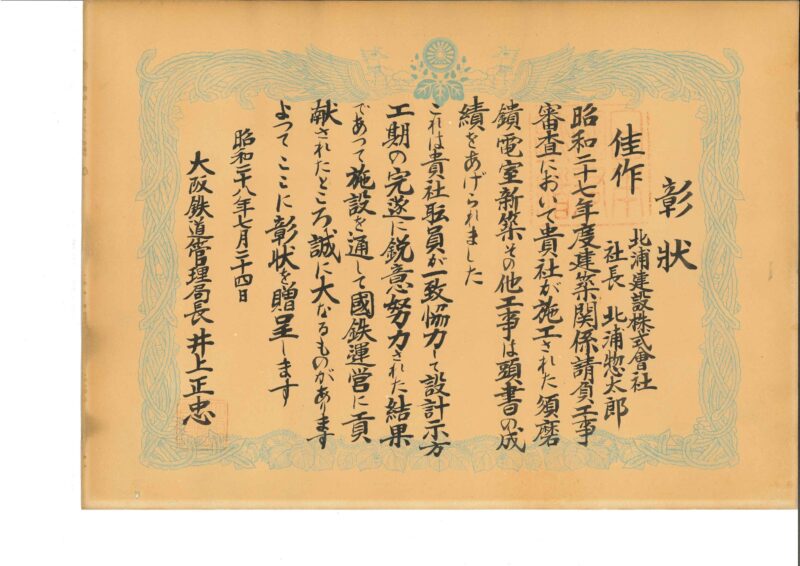 彰状
佳作
北浦建設株式會社
社長 北浦惣太郎
昭和二十七年度建築関係請負工事
審査において貴社が施工された須磨
鎖電室新築その他工事は頭書の成
績をあげられました
これは貴社職員が一致協力して設計示方
工期の完遂に鋭意努力された結果
であつて施設を通して國鉄運営に貢
献されたところ誠に大なるものがあります
よつてここに彰状を贈呈します
昭和二十八年七月二十四日
大阪鉄道管理局長 井上正忠